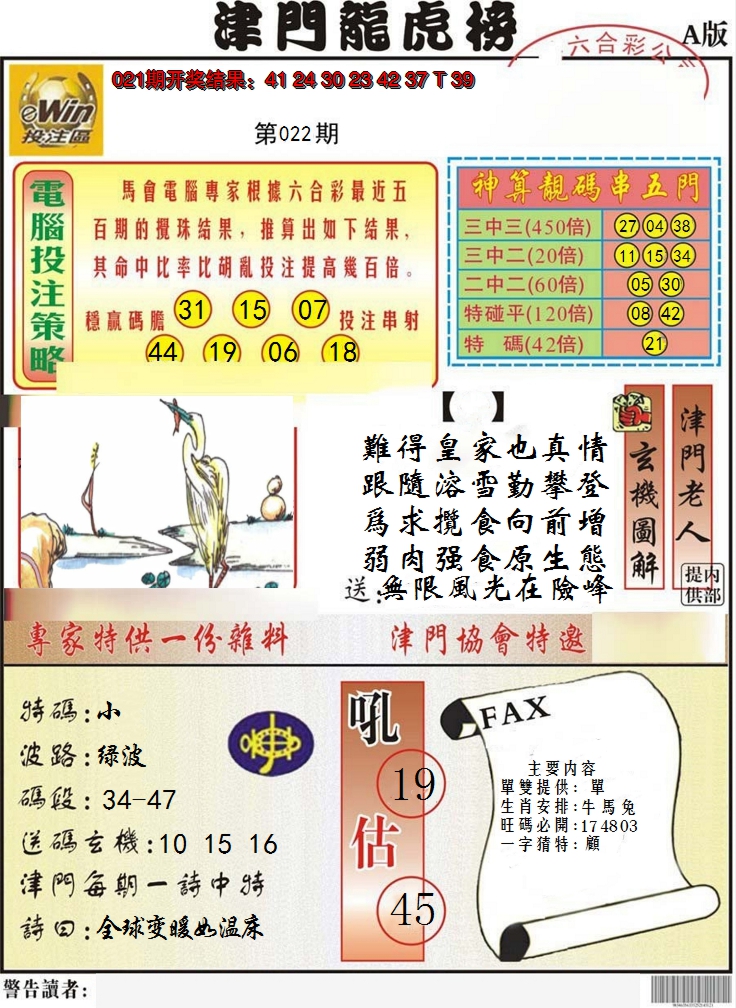 津門龍虎榜
六合彩公
A版
021期开奖结果：41 24 30 23 42 37 T 39
eWin
投注區
第022期
電腦投注策略
馬會電腦專家根據六合彩最近五
百期的攪珠结果，推算出如下结果，
其命中比率比胡亂投注提高幾百倍。
穩贏碼膽 31 15 07 投注串射
44 19 06 18
神算靚碼串五門
三中三(450倍) 27 04 38
三中二(20倍) 11 15 34
二中二(60倍) 05 30
特碰平(120倍) 08 42
特 碼(42倍) 21
【 】
難得皇家也真情
跟隨溶雪勤攀登
爲求攬食向前增
弱肉强食原生態
送:無限風光在險峰
玄機圖解
津門老人
内部提供
專家特供一份雜料
津門協會特邀
特碼:小
波路:绿波
碼段:34-47
送碼玄機:10 15 16
津門每期一詩中特
詩曰:全球变暖如温床
吼
19
估
45
FAX
主要内容
單雙提供：單
生肖安排:牛馬兔
旺碼必開:174803
一字猜特:顧
警告讀者: